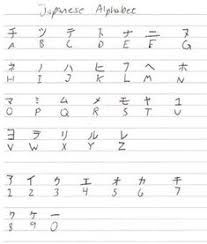 Japanese Alphabet
チ ツ テ ト ナ ニ ヌ
A B C D E F G
ネ ノ ハ ヒ フ ヘ ホ
H I J K L M N
マ ミ ム メ モ ヤ
O P Q R S T U
ヨ ラ リ ル レ
V W X Y Z
ア イ ウ エ オ カ チ
1 2 3 4 5 6 7
ク ケ ー
8 9 0